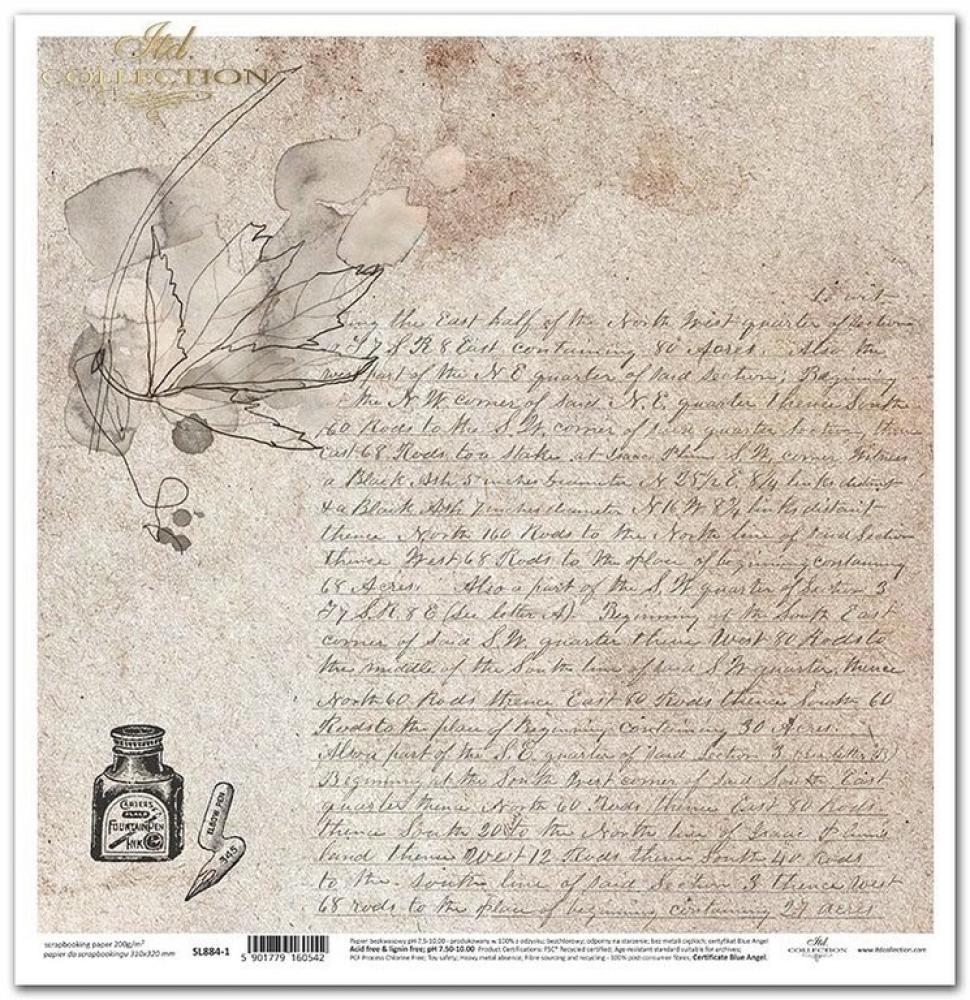 Itd.
COLLECTION
to wit
ing the East half of the North West quarter of Section
T 7 S. R 8 East containing 80 Acres. Also the
west part of the N. E quarter of said Section; Beginning
the N. W. corner of said N. E. quarter thence South
60 Rods to the S. W. corner of said quarter Section, thence
East 68 Rods to a stake at Isaac S. W. corner Witness
a Black Ash 5 inches diameter N 25½ E 8¼ links distant
& a Black Ash 7 inches diameter N 16 W 8¾ links distant
thence North 160 Rods to the North line of said Section
thence West 68 Rods to the place of beginning containing
68 Acres. Also a part of the S. W quarter of Section 3
T 7 S. R. 8 E (See letter A). Beginning at the South East
corner of said S. W. quarter thence West 80 Rods to
the middle of the South line of said S W quarter, thence
North 60 Rods thence East 80 Rods thence South 60
Rods to the place of Beginning containing 30 Acres.
Also a part of the S. E. quarter of said Section 3
Beginning at the South West corner of said South East
quarter thence North 60 Rods thence East 80 Rods
thence South 20 to the North line of Isaac
land thence West 12 Rods thence South 40 Rods
to the south line of said Section 3 thence West
68 rods to the place of beginning containing 27 acres
CARTER'S
BLACK
FOUNTAIN PEN
INK
ELBOW PEN
345
scrapbooking paper 200g/m²
papier do scrapbookingu 310x320 mm
SL884-1
5 901779 160542
Papier bezkwasowy pH 7,5-10,00 - produkowany w 100% z odzysku; bezchlorowy; odporny na starzenie; bez metali ciężkich; certyfikat Blue Angel
Acid free & lignin free; pH 7.50-10.00 Product Certifications: FSC® Recycled certified; Age resistant standard suitable for archives;
PCF Process Chlorine Free; Toy safety; Heavy metal absence; Fibre sourcing and recycling - 100% post-consumer fibres; Certificate Blue Angel.
Itd.
COLLECTION
www.itdcollection.com